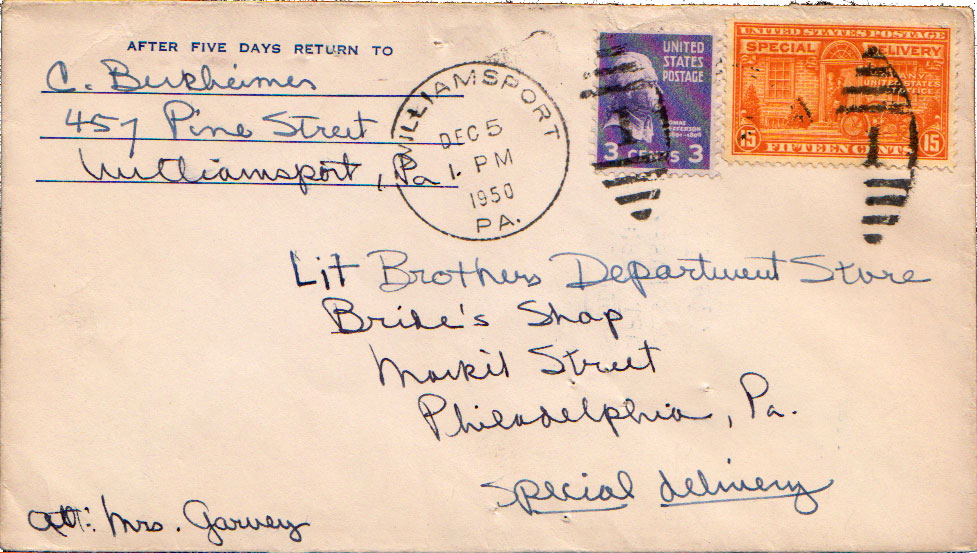 AFTER FIVE DAYS RETURN TO
C. Berkheimer
457 Pine Street
Williamsport, Pa.
WILLIAMSPORT
DEC 5
1 PM
1950
PA.
UNITED
STATES
POSTAGE
THOMAS
JEFFERSON
3 CENTS 3
UNITED STATES POSTAGE
SPECIAL DELIVERY
AT ANY
UNITED STATES
POST OFFICE
15 FIFTEEN CENTS 15
Lit Brothers Department Store
Bride's Shop
Market Street
Philadelphia, Pa.
Special delivery
Att: Mrs. Garvey